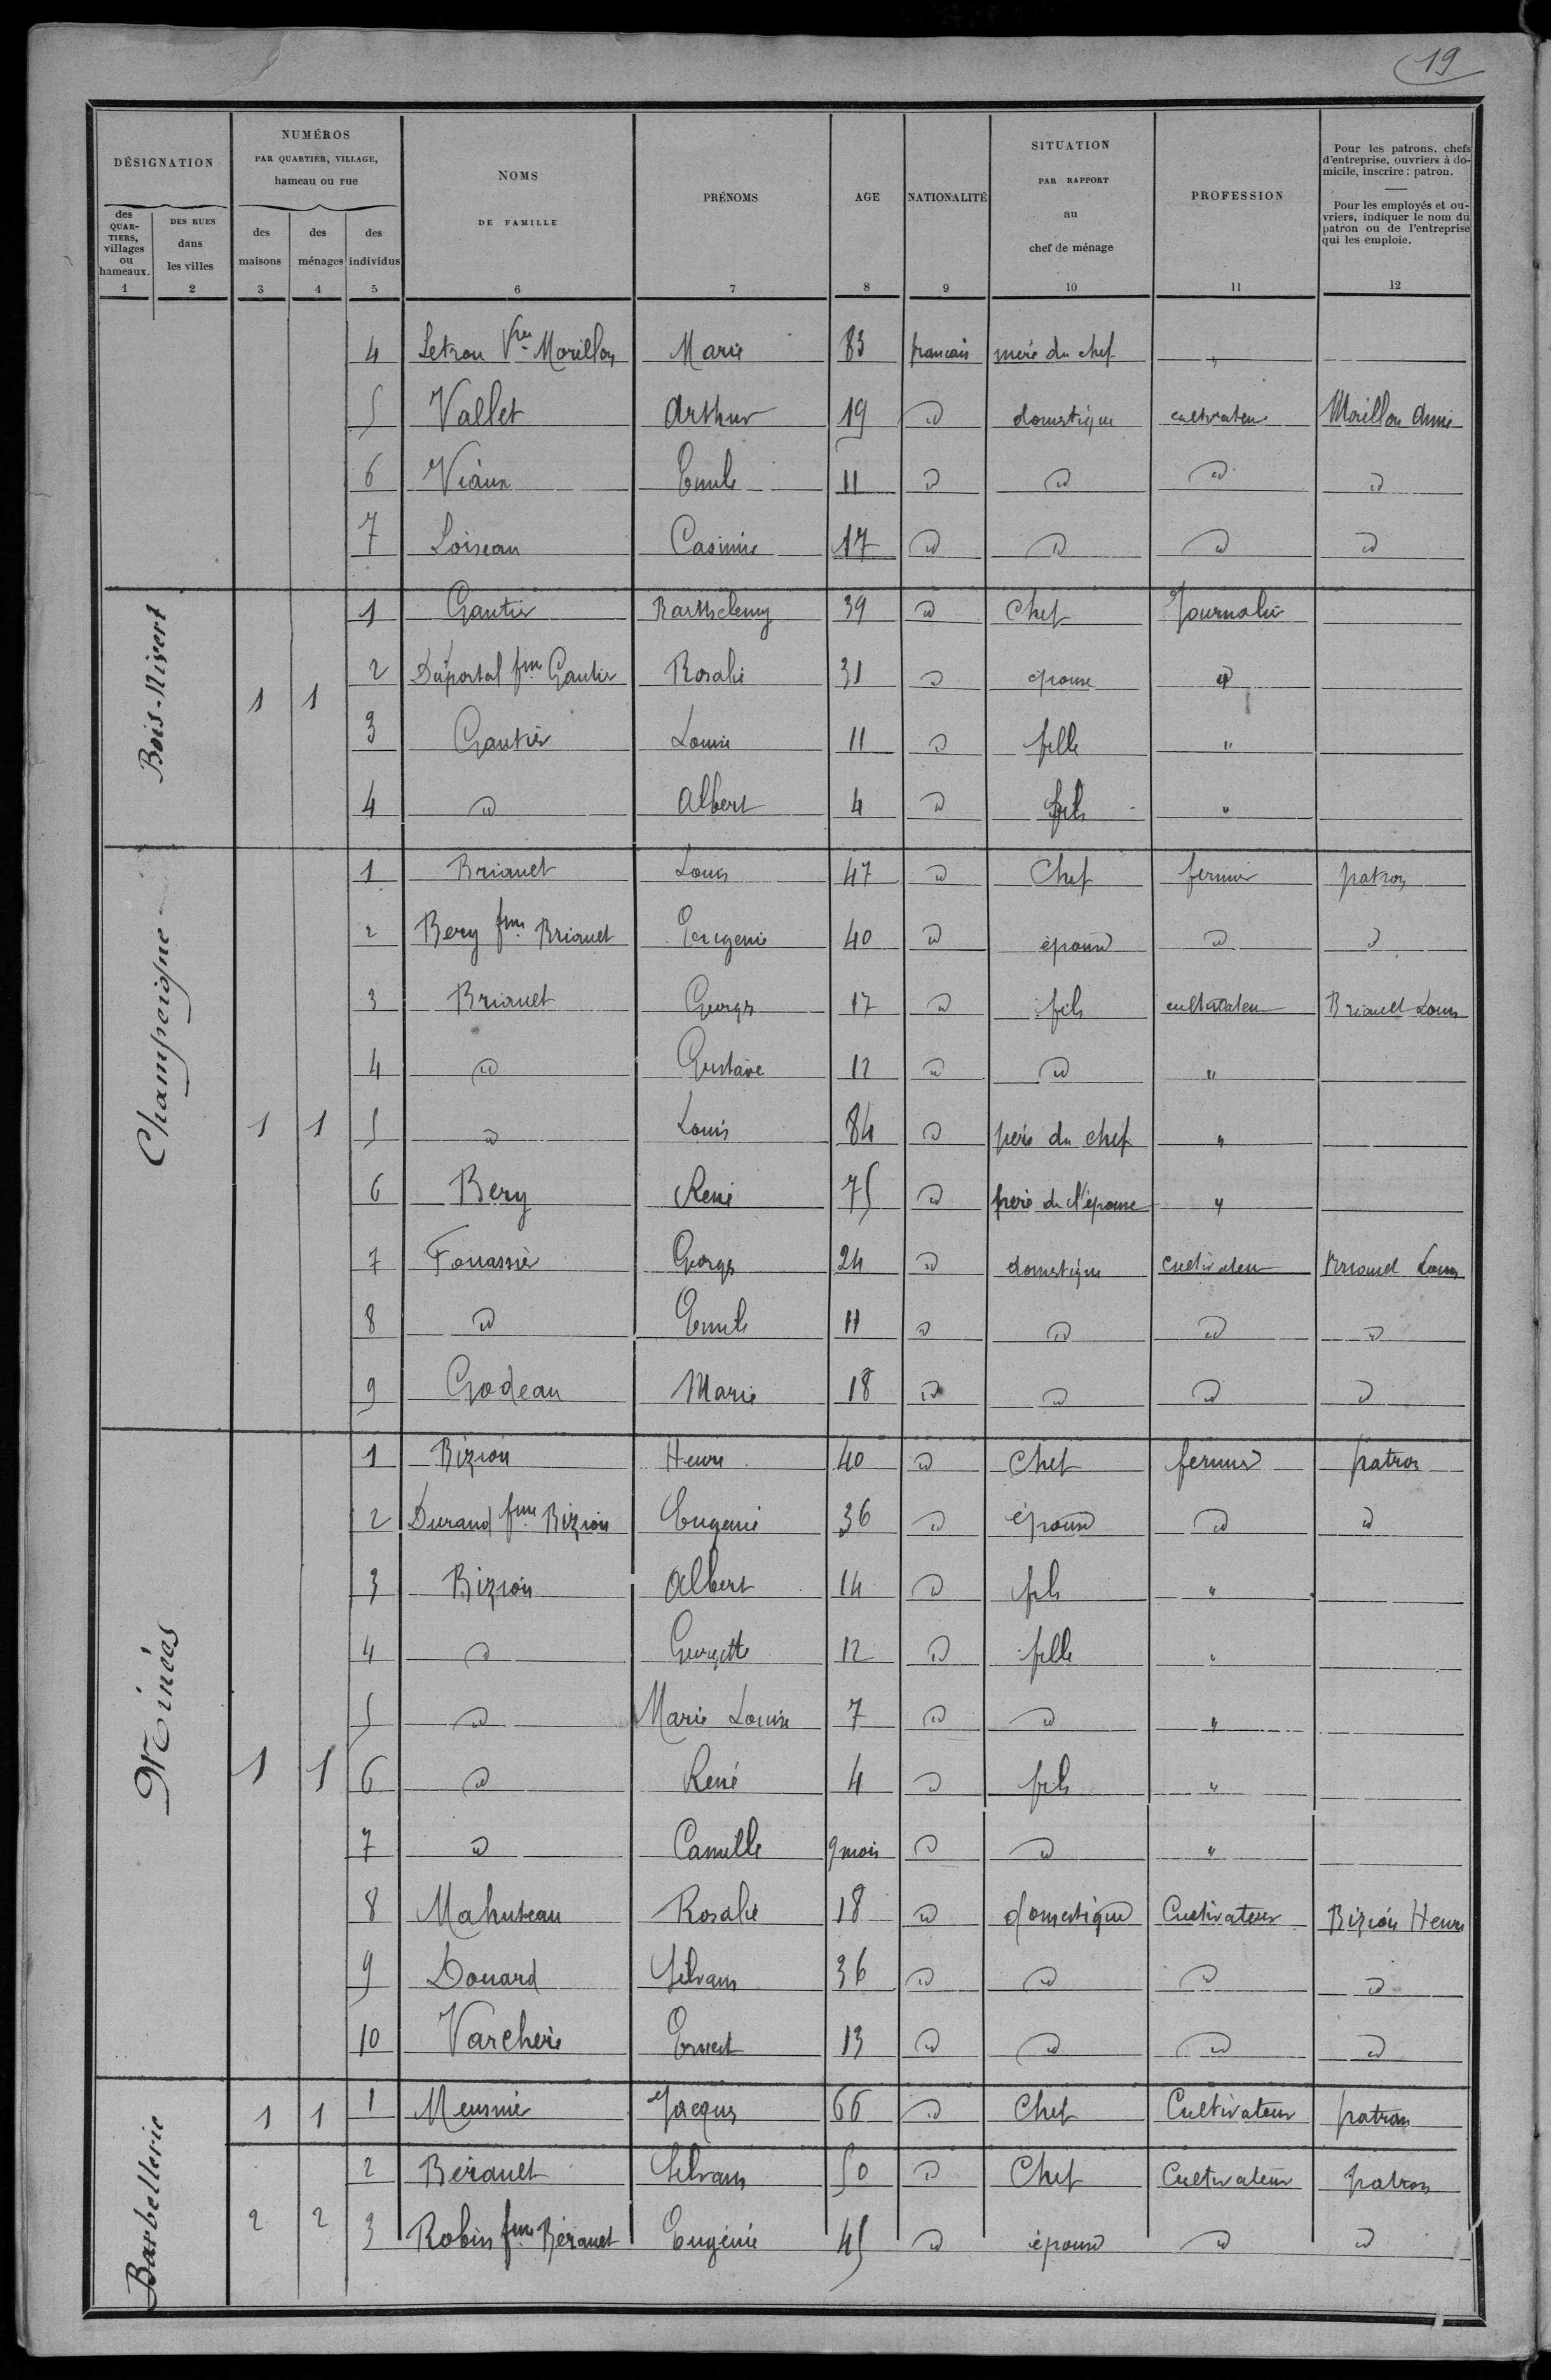 19
DÉSIGNATION
NUMÉROS
PAR QUARTIER, VILLAGE,
hameau ou rue
NOMS
DE FAMILLE
PRÉNOMS
AGE
NATIONALITÉ
SITUATION
PAR RAPPORT
au
chef de ménage
PROFESSION
Pour les patrons, chefs
d'entreprise, ouvriers à do-
micile, inscrire : patron.
Pour les employés et ou-
vriers, indiquer le nom du
patron ou de l'entreprise
qui les emploie.
des
QUAR-
TIERS,
villages
ou
hameaux.
DES RUES
dans
les villes
des
maisons
des
ménages
des
individus
1 2 3 4 5 6 7 8 9 10 11 12
4 Letrou Vve Morillon Marie 83 francais mère du chef "
5 Vallet Arthur 19 d domestique cultivateur Morillon
6 Viaux Emile 11 d d d d
7 Loiseau Casimir 17 d d d d
Bois-Rivert
1 1
1 Gautier Barthelemy 39 d Chef Journalier
2 Duportal fme Gautier Rosalie 31 d épouse d
3 Gautier Louise 11 d fille "
4 d Albert 4 d fils "
Champeigne
1 1
1 Briault Louis 47 d Chef fermier patron
2 Bery fme Briault Eugenie 40 d épouse d d
3 Briault Georges 17 d fils cultivateur Briault Louis
4 d Gustave 12 d d "
5 d Louis 84 d père du chef "
6 Bery René 75 d père de l'épouse "
7 Fouassier Georges 24 d domestique cultivateur Briault Louis
8 d Emile 11 d d d d
9 Godeau Marie 18 d d d d
Minées
1 1
1 Bizion Henri 40 d Chef fermier patron
2 Durand fme Bizion Eugenie 36 d épouse d d
3 Bizion Albert 14 d fils "
4 d Georgette 12 d fille "
5 d Marie Louise 7 d d "
6 d René 4 d fils "
7 d Camille 9 mois d d "
8 Mahuteau Rosalie 18 d domestique Cultivateur Bizion Henri
9 Douard Silvain 36 d d d d
10 Varcherie Ernest 13 d d d d
Barbellerie
1 1 1 Meusnier Jacques 66 d Chef Cultivateur patron
2 2
2 Berault Silvain 50 d Chef Cultivateur patron
3 Robin fme Bérault Eugénie 45 d épouse d d